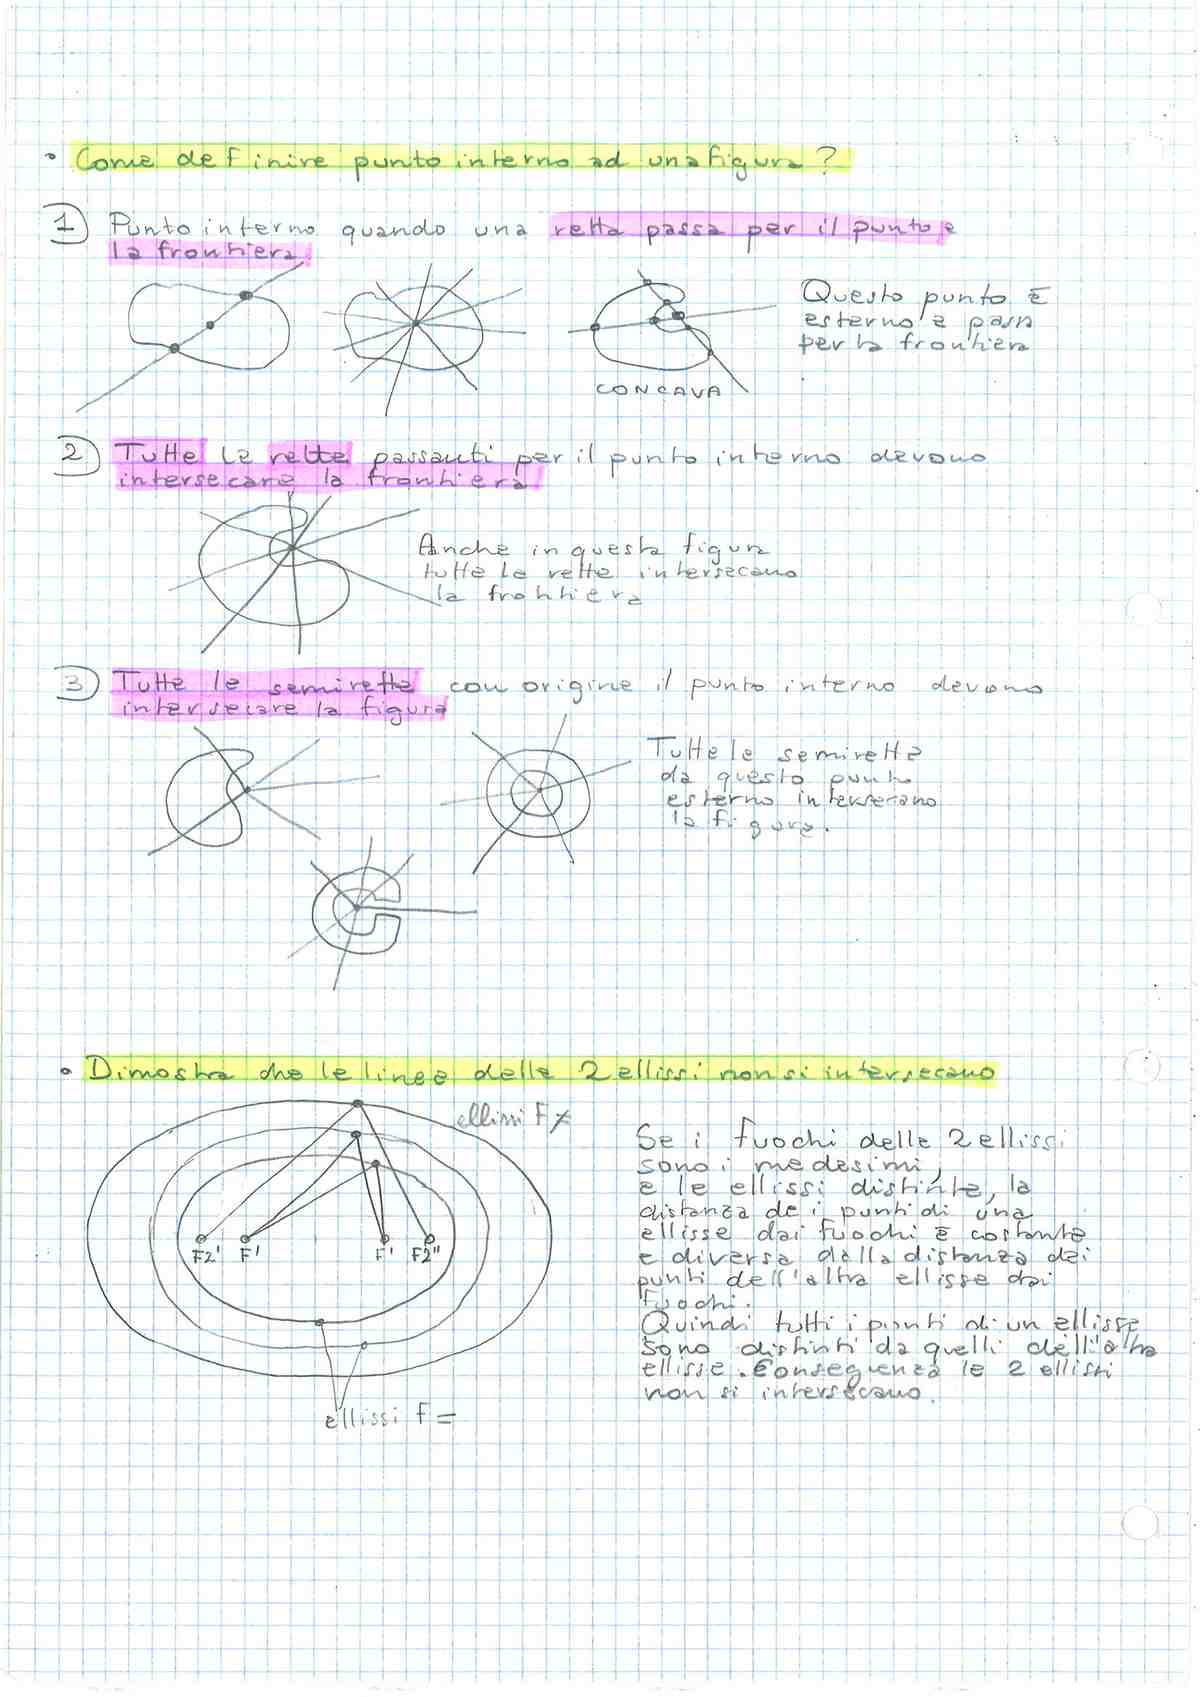 • Come definire punto interno ad una figura?
1) Punto interno quando una retta passa per il punto e
la frontiera.
Questo punto è
esterno e passa
per la frontiera
CONCAVA
2) Tutte le rette passanti per il punto interno devono
intersecare la frontiera
Anche in questa figura
tutte le rette intersecano
la frontiera
3) Tutte le semirette con origine il punto interno devono
intersecare la figura
Tutte le semirette
da questo punto
esterno intersecano
la figura.
• Dimostra che le linee delle 2 ellissi non si intersecano
ellissi F ≠
Se i fuochi delle 2 ellissi
sono i medesimi,
e le ellissi distinte, la
distanza dei punti di una
ellisse dai fuochi è costante
e diversa dalla distanza dei
punti dell'altra ellisse dai
fuochi.
Quindi tutti i punti di un ellisse
sono distinti da quelli dell'altra
ellisse. Conseguenza le 2 ellissi
non si intersecano.
F2' F' F' F2''
ellissi F =